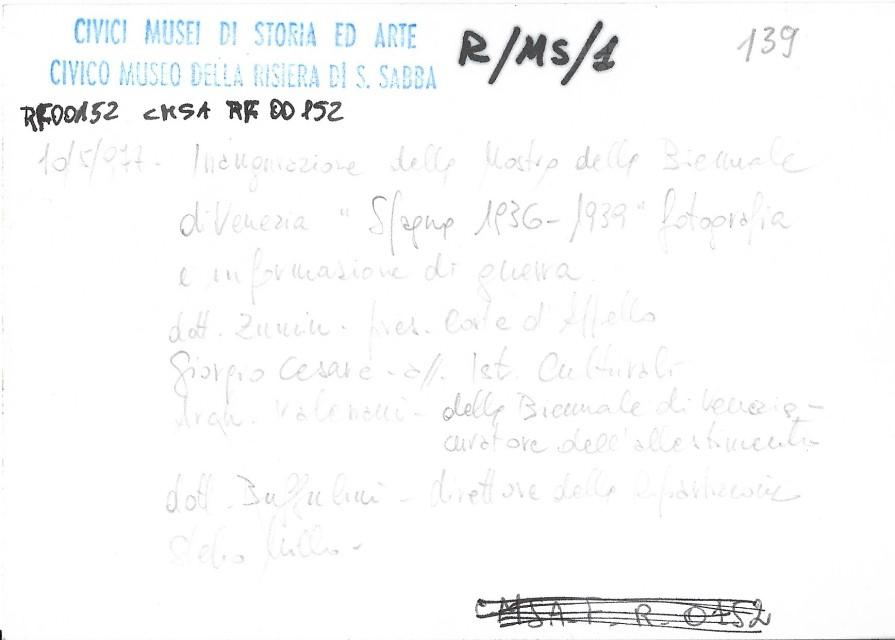 CIVICI MUSEI DI STORIA ED ARTE
CIVICO MUSEO DELLA RISIERA DI S. SABBA
R/MS/1
139
RF00152 CMSA RF 00152
10/5/977 - Inaugurazione della Mostra della Biennale
di Venezia "Spagna 1936-1939" fotografia
e informazione di guerra
dott. Zumin - pres. Corte d'Appello
Giorgio Cesare - Ist. Culturali
Arch. - della Biennale di Venezia -
curatore dell'allestimento
dott. - direttore della Ripartizione
CMSA F. R. 0152